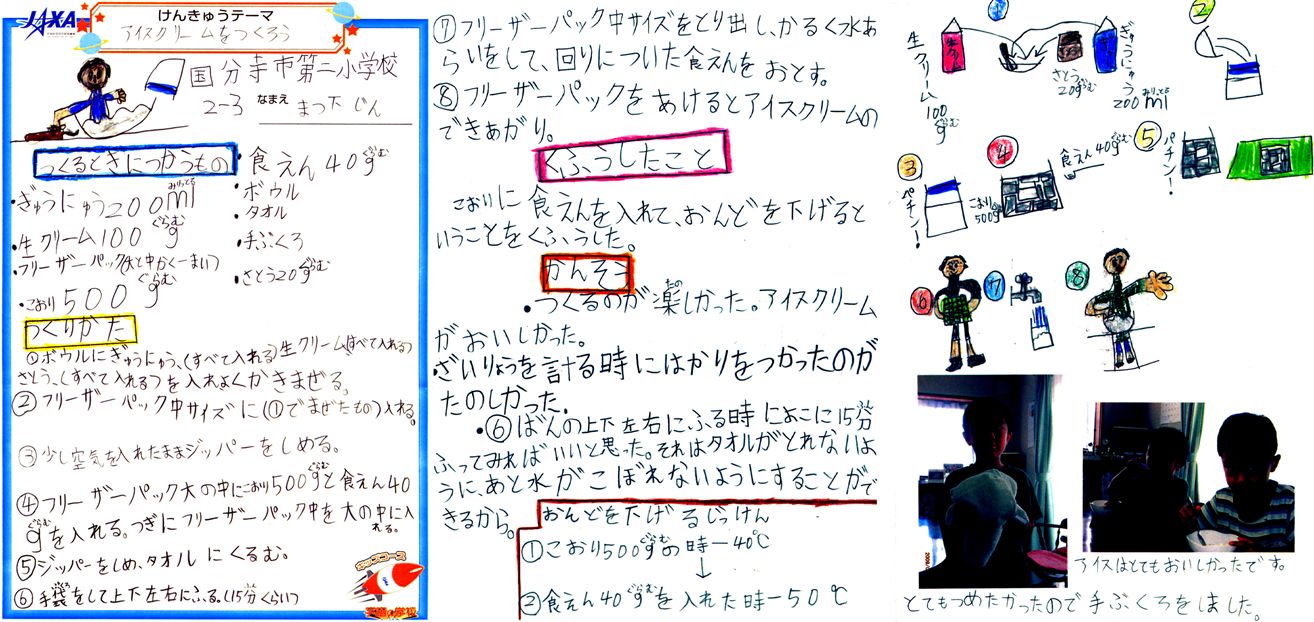 JAXA
けんきゅうテーマ
アイスクリームをつくろう
国分寺市第二小学校
2-3 なまえ まつ下 じん
つくるときにつかうもの
・ぎゅうにゅう200mlみりっとる
・生クリーム100gぐらむ
・フリーザーパック(大と中かく一まい)
・こおり500gぐらむ
・食えん40gぐらむ
・ボウル
・タオル
・手ぶくろ
・さとう20gぐらむ
つくりかた
①ボウルにぎゅうにゅう、(すべて入れる)生クリーム(すべて入れる)
さとう、(すべて入れる)を入れよくかきまぜる。
②フリーザーパック中サイズに(①でまぜたもの)入れる。
③少し空気を入れたままジッパーをしめる。
④フリーザーパック大の中にこおり500gぐらむと食えん40
gぐらむを入れる。つぎにフリーザーパック中を大の中に入
れる。
⑤ジッパーをしめ、タオルにくるむ。
⑥手袋をして上下左右にふる。(15分くらい)
⑦フリーザーパック中サイズをとり出し、かるく水あ
らいをして、回りについた食えんをおとす。
⑧フリーザーパックをあけるとアイスクリームの
できあがり。
くふうしたこと
こおりに食えんを入れて、おんどを下げると
いうことをくふうした。
かんそう
・つくるのが楽たのしかった。アイスクリーム
がおいしかった。
・ざいりょうを計る時にはかりをつかったのが
たのしかった。
・⑥ばんの上下左右にふる時によこに15分
ふってみればいいと思った。それはタオルがとれないよ
うに、あと水がこぼれないようにすることがで
きるから。
おんどを下げるじっけん
①こおり500gぐらむの時ー40℃
↓
②食えん40gぐらむを入れた時ー50℃
①
生クリーム100gぐらむ
さとう20gぐらむ
ぎゅうにゅう200mlみりっとる
②
③
パチン!
④
こおり500gぐらむ
食えん40gぐらむ
⑤
パチン!
⑥
⑦
⑧
アイスはとてもおいしかったです。
とてもつめたかったので手ぶくろをしました。